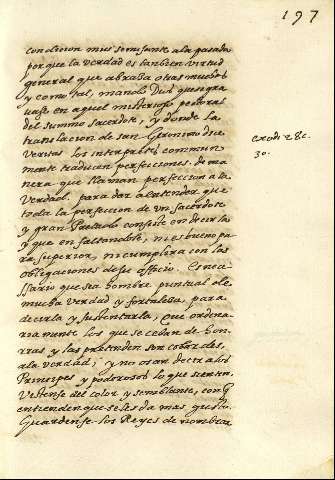 197
condicion muy semejante a la pasada
porque la verdad es tanbien virtud
general que abraza otras muchas
y como tal, mando Dios que se gra
uase en aquel misterioso pectoral
del summo sacerdote, y donde la
translacion de san Geronimo dice
Veritas los interpretes commun
mente traducen perfecciones. de ma
nera que llaman perfeccion a la
Verdad, para dar a entender que
toda la perfeccion de un sacerdote
y gran Prelado consiste en decirla
y que en faltandole, ni es bueno pa
ra superior, ni cumplira con las
obligaciones de su officio. Es nece
ssario que sea hombre puntual de
mucha verdad y fortaleza, para
decirla y sustentarla, Que ordena
riamente los que se ceban de hon
rras y las pretenden son cobardes,
a la verdad, y no osan decir a los
Principes y poderosos lo que sienten.
Vestense del color y semblante, con q
entienden que se les da mas gusto.
Guardense los Reyes de nombrar
exodi 28 c.
30.